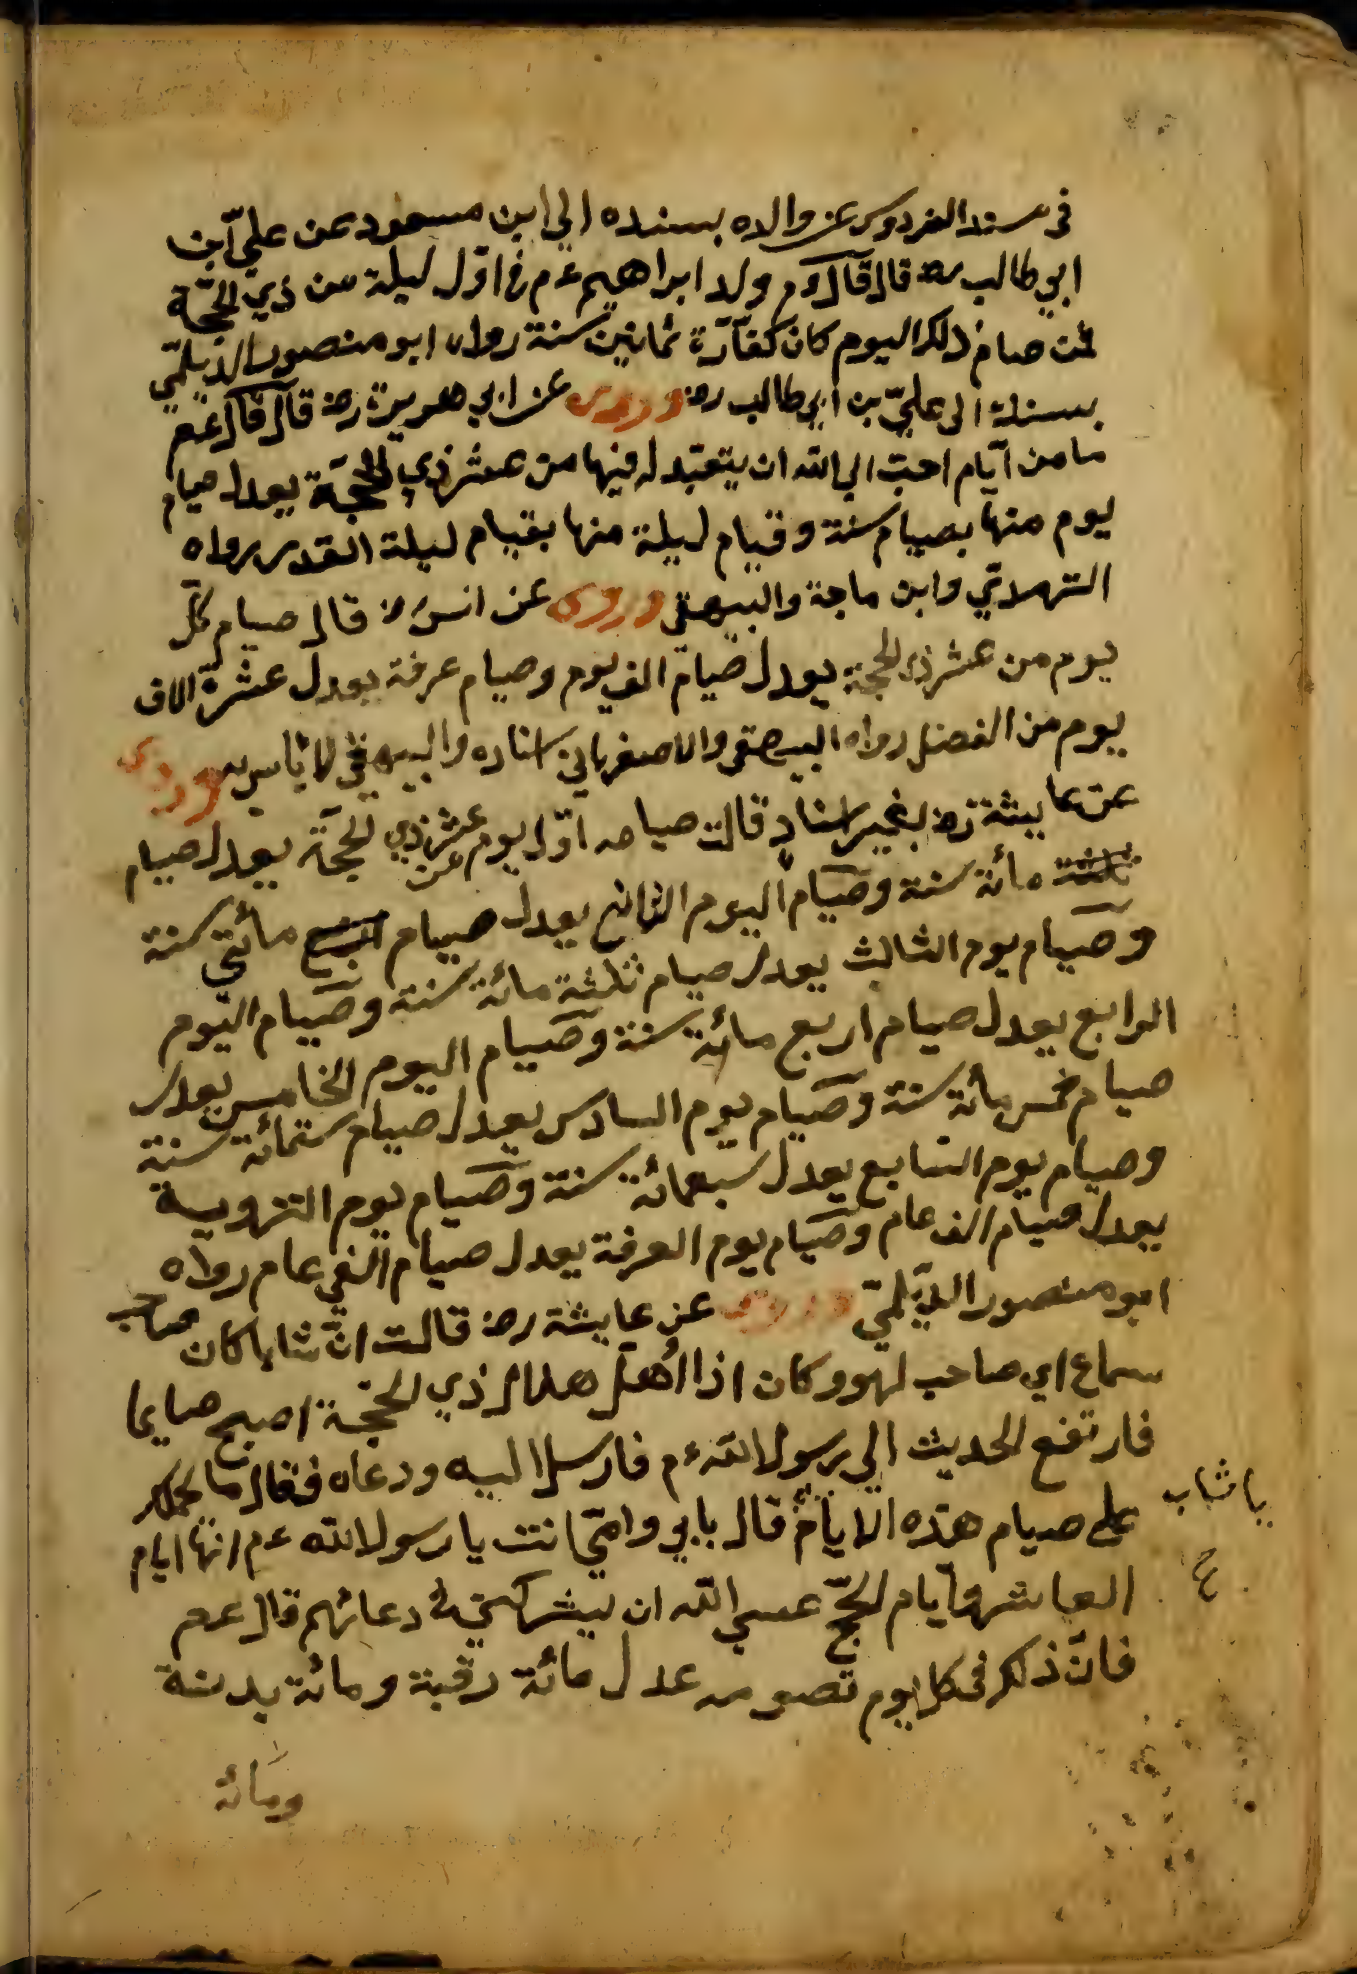 في مسند الفردوس عن والده بسنده الي ابن مسعود عن عليّ ابن
ابي طالب رضه قال قال ءم ولد ابراهيم ءم في اوّل ليلة من ذي الحجّة
فمن صام ذلك اليوم كان كفّارة ثمانين سنة رواه ابو منصور الديلمّي
بسنده الى عليّ بن ابي طالب رضه وروى عن ابي هريرة رضه قال قال عم
ما من ايّام احبّ الي الله ان يتعبّد له فيها من عشر ذي الحجّة يعدل صيام
يوم منها بصيام سنة وقيام ليلة منها بقيام ليلة القدر رواه
الترمذي وابن ماجة والبيهقي وروى عن انس رض قال صيام كلّ
يوم من عشر ذي الحجة يعدل صيام الف يوم وصيام عرفة يعدل عشرة الاف
يوم من الفضل رواه البيهقي والاصفهاني اسناده والبيهقي لا بأس به وروى
عن عايشة رضه بغير اسناد قالت صيامه اوّل يوم من عشر ذي الحجّة يعدل صيام
مائة سنة وصيام اليوم الثاني يعدل صيام مائتي سنة
وصيام يوم الثالث يعدل صيام ثلثة مائة سنة وصيام اليوم
الرابع يعدل صيام اربع مائة سنة وصيام اليوم الخامس يعدل
صيام خمس مائة سنة وصيام يوم السادس يعدل صيام ستمائة سنة
وصيام يوم السابع يعدل سبعمائة سنة وصيام يوم التروية
يعدل صيام الف عام وصيام يوم العرفة يعدل صيام الفي عام رواه
ابو منصور الديّلميّ وروى عن عايشة رضه قالت انّ شابا كان صاحب
سماع اي صاحب لهو وكان اذا اُهلّ هلال ذي الحجّة اصبح صايما
فارتفع الحديث الي رسول الله ءم فارسل اليه ودعاه فقال ما يحملك
يا شاب
صح
على صيام هذه الايام قال بابي وامّي انت يا رسول الله ءم انها ايام
العاشر وايام الحجّ عسي الله ان يشركني في دعائهم قال عم
فانّ ذلك في كل يوم تصومه عدل مائة رقبة ومائة بدنة
ومائة